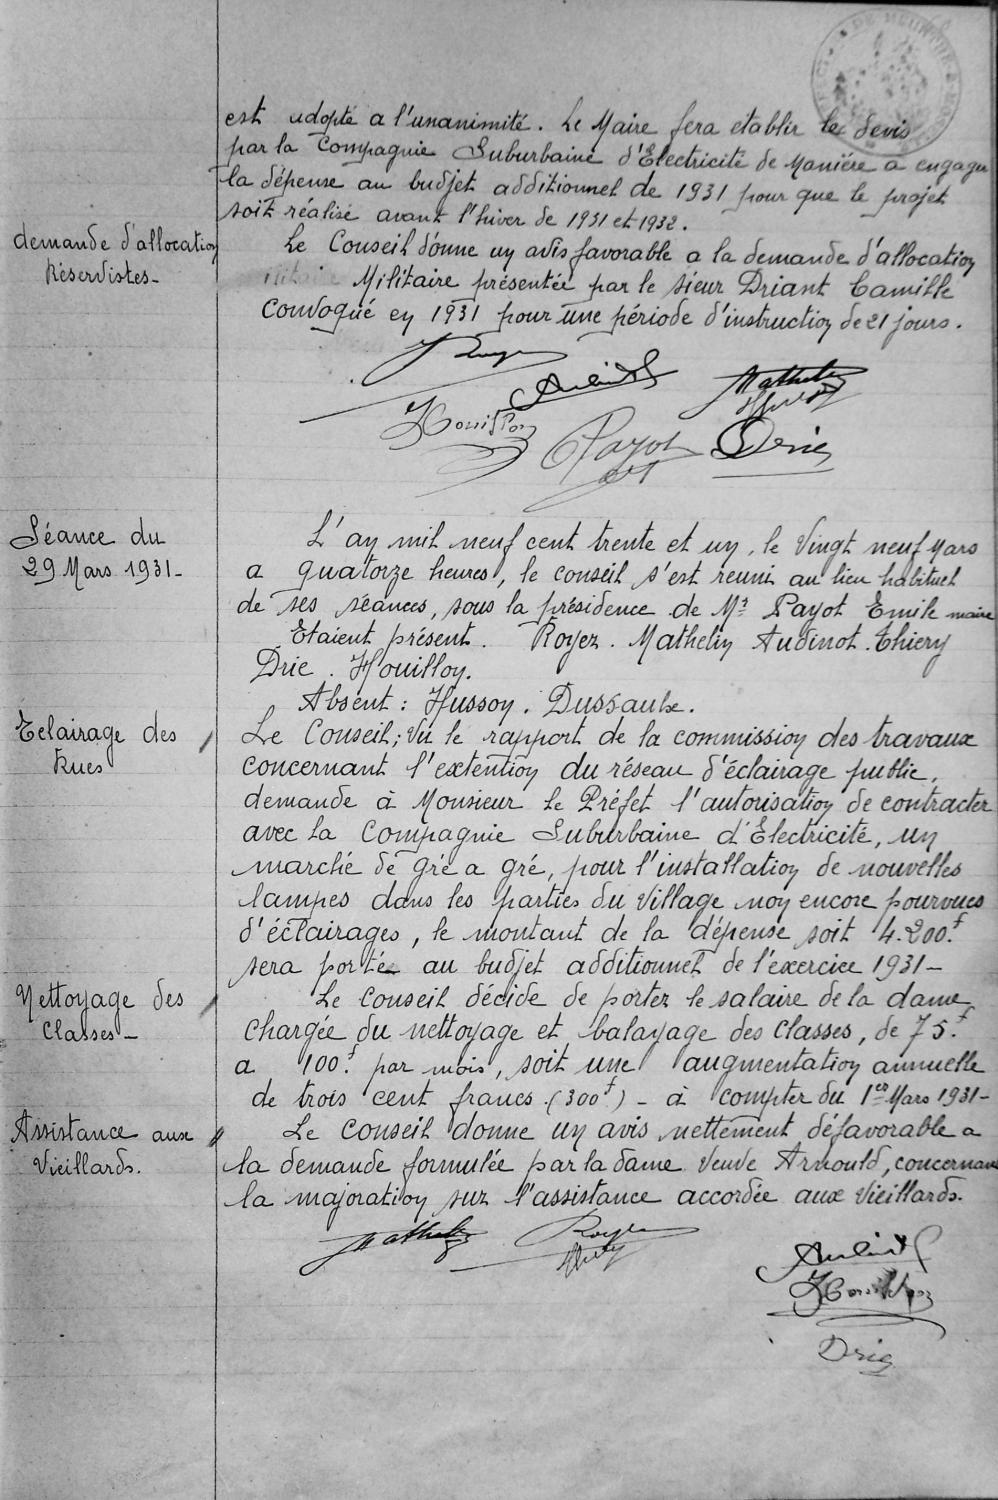 est adopté a l'unanimité. Le Maire fera etablir le devis
par la Compagnie Suburbaine d'Electricité de Maniére a engager
la dépense au budjet additionnel de 1931 pour que le projet
soit réalisé avant l'hiver de 1931 et 1932.
demande d'allocation
Réservistes -
Le Conseil donne un avis favorable a la demande d'allocation
Militaire présentée par le sieur Driant Camille
Convoqué en 1931 pour une période d'instruction de 21 jours.
Royer
Audinot
Mathelin
Houillon
Payot
Drie
Séance du
29 Mars 1931 -
L'an mil neuf cent trente et un, le Vingt neuf Mars
a quatorze heures, le conseil s'est reuni au lieu habituel
de ses séances, sous la présidence de Mr Payot Emile maire
Etaient présent. Royer. Mathelin Audinot. Thiery
Drie. Houillon.
Absent : Husson. Dussaulx.
Eclairage des
Rues
Le Conseil; Vu le rapport de la commission des travaux
concernant l'extention du réseau d'éclairage public,
demande à Monsieur Le Préfet l'autorisation de contracter
avec La Compagnie Suburbaine d'Electricité, un
marché de gré a gré, pour l'installation de nouvelles
lampes dans les parties du Village non encore pourvues
d'éclairages, le montant de la dépense soit 4.200.f
sera porté au budjet additionnel de l'exercice 1931 -
Nettoyage des
Classes -
Le Conseil décide de porter le salaire de la dame
chargée du nettoyage et balayage des Classes, de 75.f
a 100.f par mois, soit une augmentation annuelle
de trois cent francs. (300f) - à compter du 1er Mars 1931 -
Assistance aux
Vieillards.
Le Conseil donne un avis nettement défavorable a
la demande formulée par la dame Veuve Arnould, concernant
la majoration sur l'assistance accordée aux Vieillards.
Mathelin
Royer
Thiery
Audinot
Houillon
Drie